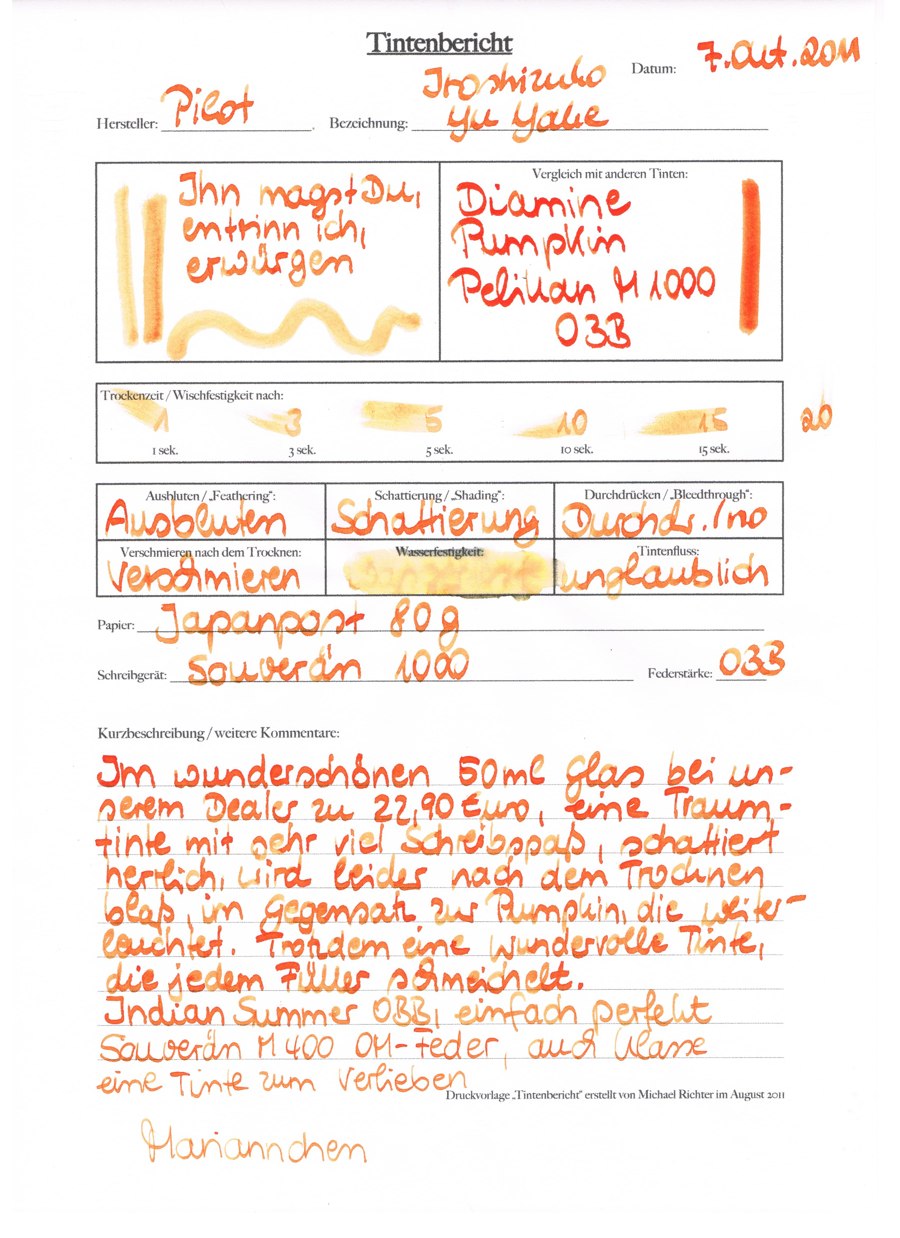 Tintenbericht
Datum: 7. Oct. 2011
Hersteller: Pilot Bezeichnung: Iroshizuko
Yu Yake
Ihn magst Du,
entrinn ich,
erwürgen
Vergleich mit anderen Tinten:
Diamine
Pumpkin
Pelikan M 1000
O3B
Trockenzeit / Wischfestigkeit nach:
1 3 5 10 15 20
1 sek. 3 sek. 5 sek. 10 sek. 15 sek.
Ausbluten / „Feathering": Schattierung / „Shading": Durchdrücken / „Bleedthrough":
Ausbluten Schattierung Durchdr./no
Verschmieren nach dem Trocknen: Wasserfestigkeit: Tintenfluss:
Verschmieren unglaublich
Papier: Japanpost 80g
Schreibgerät: Souverän 1000 Federstärke: O3B
Kurzbeschreibung / weitere Kommentare:
Im wunderschönen 50ml Glas bei un-
serem Dealer zu 22,90 Euro, eine Traum-
tinte mit sehr viel Schreibspaß, schattiert
herrlich, wird leider nach dem Trocknen
blaß, im Gegensatz zur Pumpkin, die weiter-
leuchtet. Trotzdem eine wundervolle Tinte,
die jedem Füller schmeichelt.
Indian Summer OBB, einfach perfekt
Souverän M 400 OM-Feder, auch Klasse
eine Tinte zum Verlieben
Druckvorlage „Tintenbericht" erstellt von Michael Richter im August 2011
Mariannchen